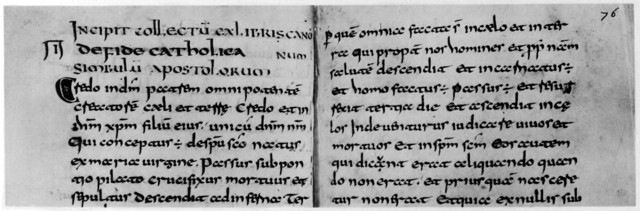 INCIPIT COLLECTŪ EX LIBRIS CANO
III DE FIDE CATHOLICA NUM
SIMBULŪ APOSTOLORUM
Credo in dm̄ patrem omnipotentē
creatorē caeli et terre Credo et in
dn̄m xp̄m filiū eius. unicū dn̄m nm̄
Qui conceptus ÷ de spū sc̄o natus
ex maria virgine. Passus sub pon
tio pilato crucifixus mortuus et
sepultus descendit ad inferna Ter
76
p̄ quē omnia facta s̄ in caelo et in ter
ra qui propt̄ nos homines et pp̄ nr̄am
salutē descendit et incarnatus ÷
et homo factus ÷ Passus ÷ et resur
tertia die et ascendit in ce
los Inde venturus iudicare vivos et
mortuos et in spm̄ sc̄m
qui erat aliquando quan
do non erat. et prius quā nasce
tur non erat Et quia ex nullis sub